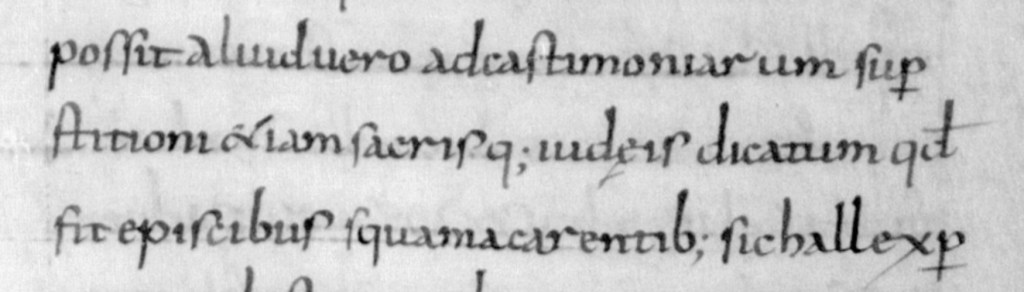 possit aluiduero adcastimoniarum suꝑ
stitioni &iam sacrisq; iudęis dicatum qđ
fit episcibus squamacarentib; sichallexꝑ